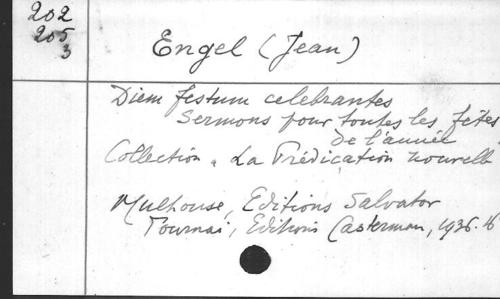 202
205
3
Engel (Jean)
Diem festum celebrantes
Sermons pour toutes les fêtes
de l'année
Collection "La Prédication nouvelle
Mulhouse, Editions Salvator
Tournai, Editions Casterman, 1936. 16